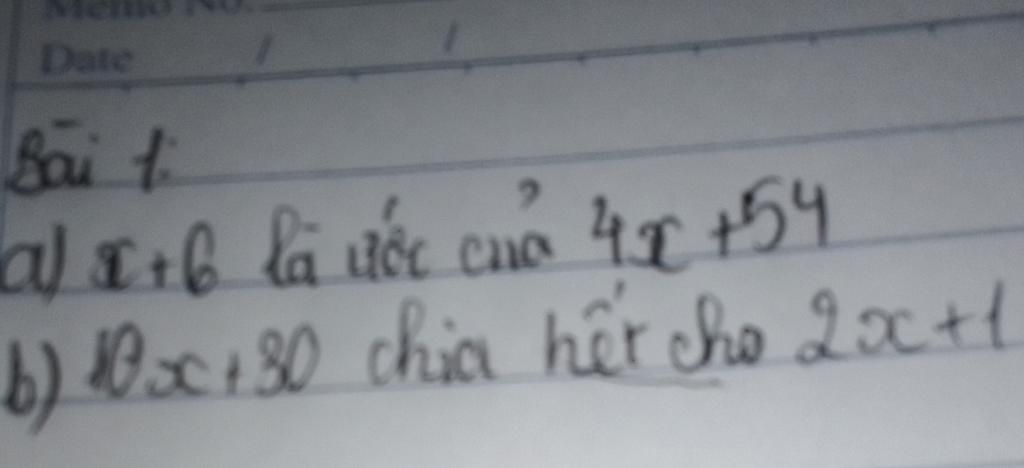 Memo No.
Date / /
Bài 1:
a) x+6 là ước của 4x+54
b) 10x+30 chia hết cho 2x+1